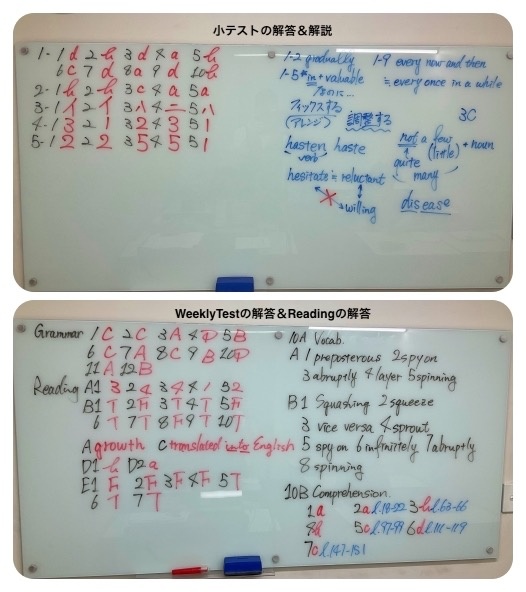 小テストの解答&解説
1-1d 2h 3d 4a 5h
6c 7d 8a 9d 10h
2-1h 2h 3c 4a 5a
3-1イ 2イ 3ハ 4ニ 5ハ
4-13 21 32 43 51
5-12 22 35 45 51
1-2 gradually
1-9 every now and then
1-5 *in+valuable
≒every once in a while
なのに…
フィックスする
(アレンジ) 調整する
3C
hasten haste
verb
not a few (little) + noun
quite
many
hesitate≒reluctant
willing
disease
WeeklyTestの解答&Readingの解答
Grammar 1C 2C 3A 4D 5B
6C 7A 8C 9B 10D
11A 12B
Reading A1 3 24 34 41 52
B1T 2F 3T 4T 5F
6T 7T 8F 9T 10T
A growth C translated into English
D1h D2a
E1F 2F 3F 4F 5T
6T 7T
10A Vocab.
A 1 preposterous 2 spy on
3 abruptly 4 layer 5 spinning
B1 Squashing 2 squeeze
3 vice versa 4 sprout
5 spy on 6 infinitely 7 abruptly
8 spinning
10B Comprehension.
1a 2a l.18-22 3h l.63-66
4h 5c l.97-99 6d l.111-119
7c l.147-151